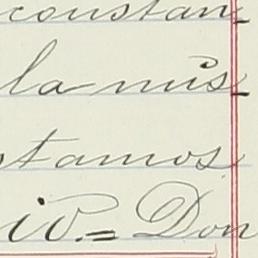 constan-
la mis-
stamos
io.= Don